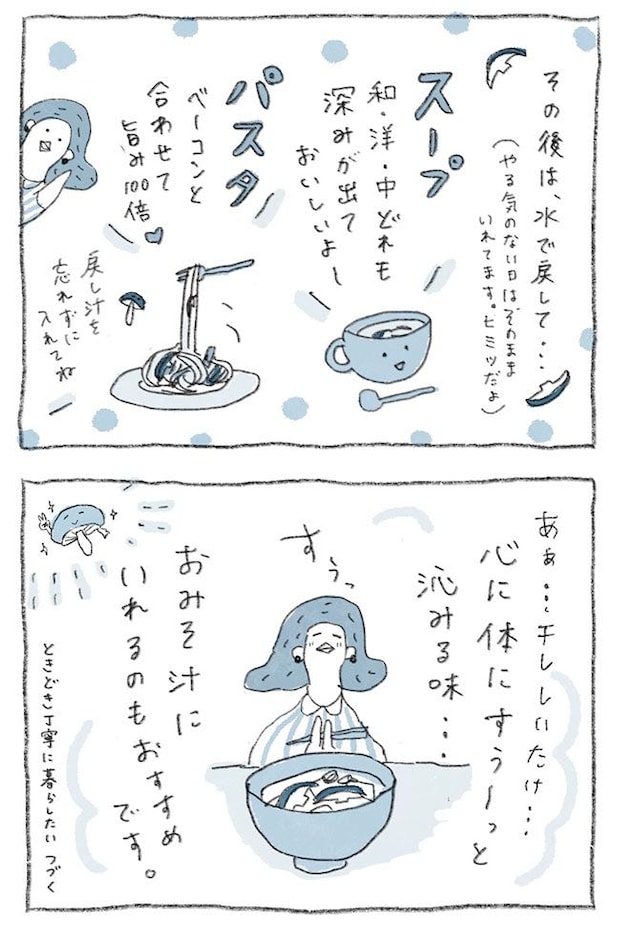 その後は、水で戻して・・・
（やる気のない日はそのまま
いれてます。ヒミツだよ）
スープ
和・洋・中どれも
深みが出て
おいしいよー
パスタ
ベーコンと
合わせて
旨み100倍
戻し汁を
忘れずに
入れてね
あぁ・・・干ししいたけ・・・
心に体にすぅ〜っと
沁みる味・・・
すぅっ
おみそ汁に
いれるのもおすすめ
です。
ときどき丁寧に暮らしたい つづく